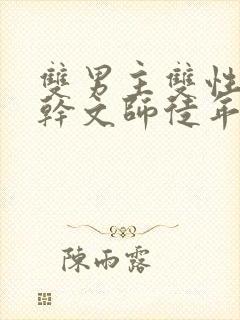 雙男主雙性
幹文師徒年
陳雨露